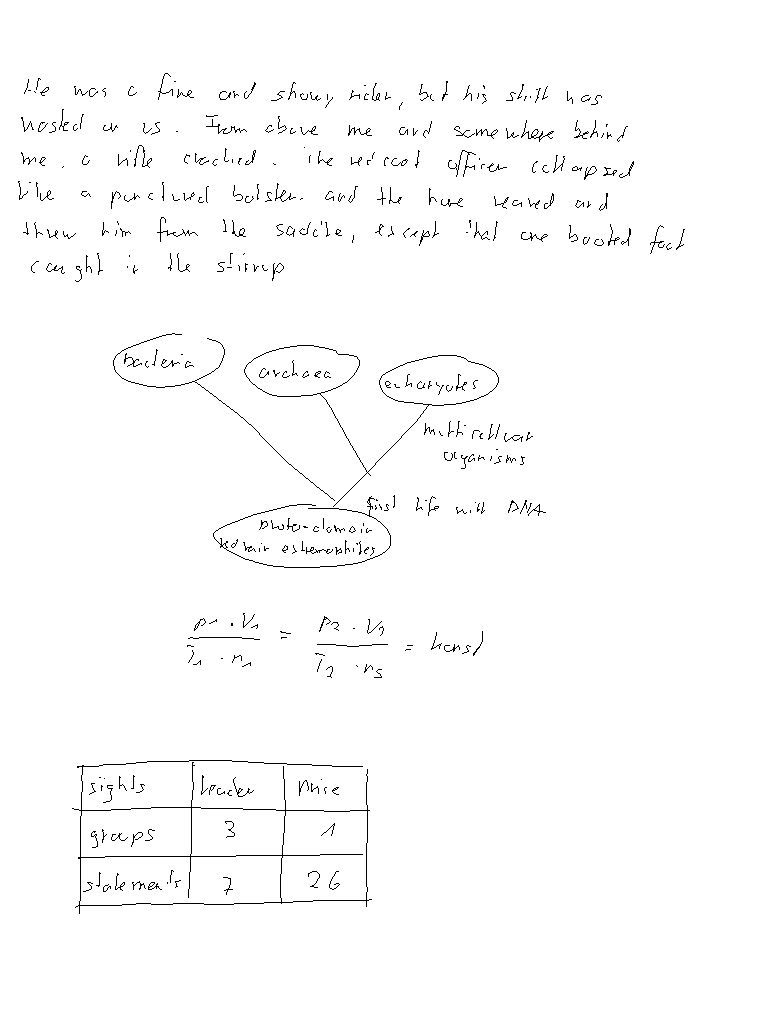 He was a fine and showy rider, but his skill was
wasted on us. From above me and somewhere behind
me, a rifle cracked. The redcoat officer collapsed
like a punctured bolster. and the horse reared and
threw him from the saddle, except that one booted foot
caught in the stirrup
bacteria
archaea
eukaryotes
multicellular
organisms
first life with DNA
proto-domain
red rain extremophiles
p1 · V1 / T1 · n1 = p2 · V2 / T2 · n2 = konst
sights leader price
groups 3 1
statements 7 26